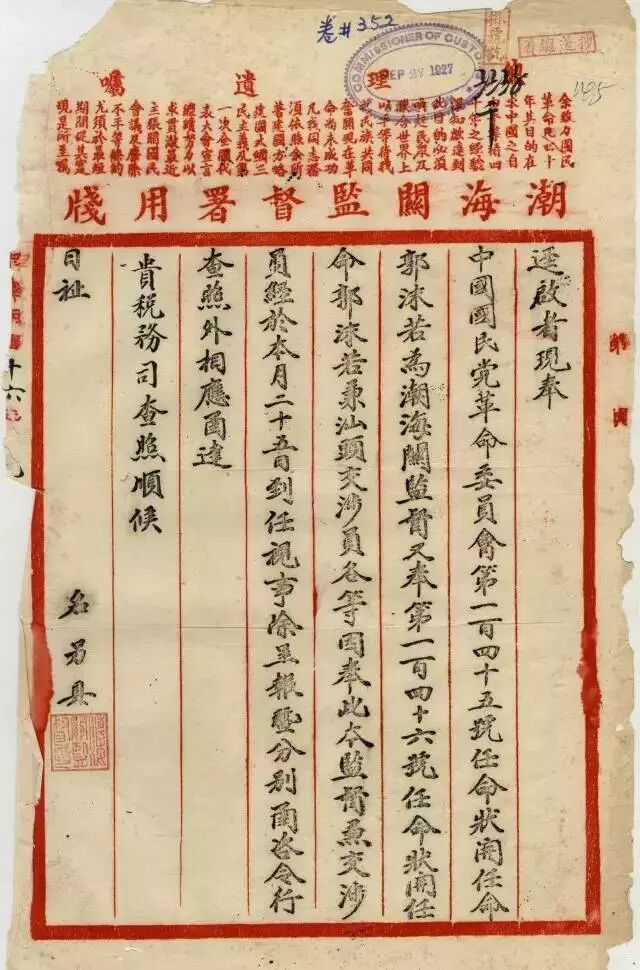 卷#352
COMMISSIONER OF CUSTOMS
SEP 27 1927
理遺囑
余致力國民
革命凡四十
年其目的在
求中國之自
等積四
年之經驗
深知欲達到
此目的必須
喚起民眾及
聯合世界上
以平等待我
之民族共同
奮鬬現在革
命尚未成功
凡我同志務
須依照余所
著建國方略
建國大綱三
民主義及第
一次全國代
表大會宣言
繼續努力以
求貫澈最近
主張開國民
會議及廢除
不平等條約
尤須於最短
期間促其實
現是所至囑
潮海關監督署用牋
逕啟者現奉
中國國民党革命委員會第一百四十五號任命狀開任命
郭沫若為潮海關監督又奉第一百四十六號任命狀開任
命郭沫若兼汕頭交涉員各等因奉此本監督兼交涉
員經於本月二十五日到任視事除呈報暨分別函咨令行
查照外相應函達
貴稅務司查照順候
日祉 名另具
十六